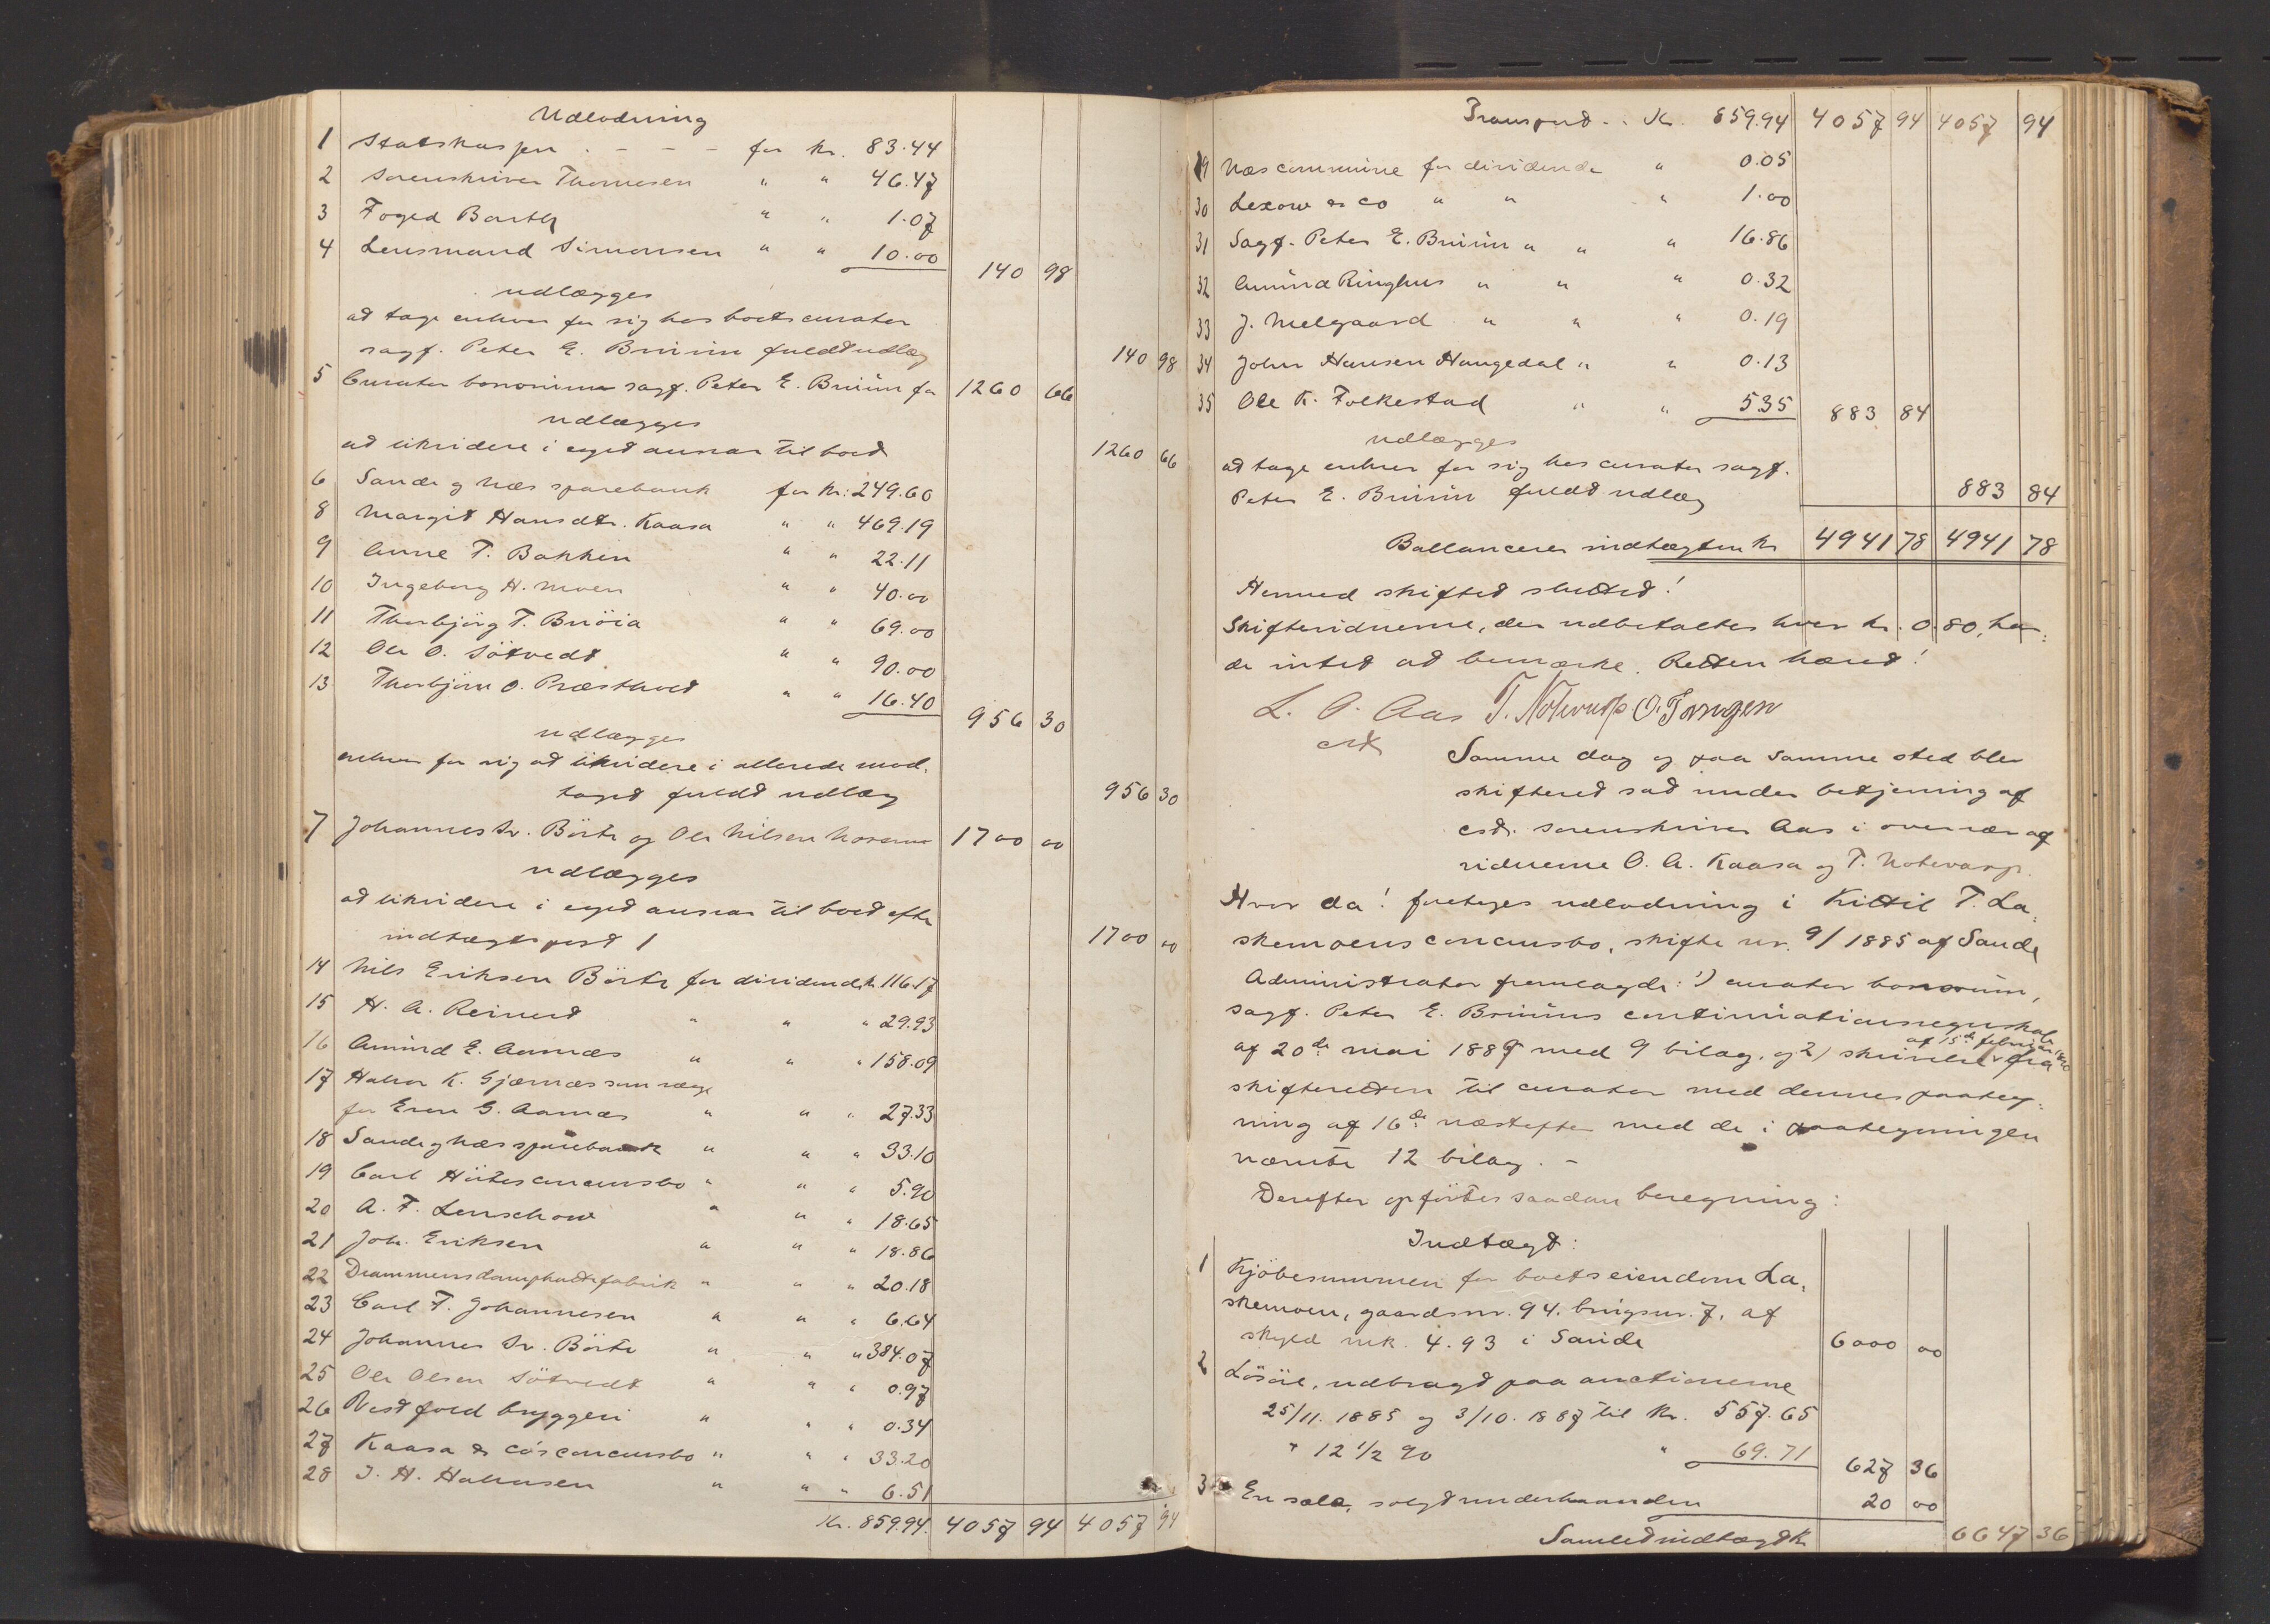 Udlodning
1 Statskassen . - - - for kr. 83.44
2 Sorenskriver Thomesen " " 46.47
3 Foged Barth " " 1.07
4 Lensmand Simonsen " " 10.00 140 98
udlægges
at tage enhver for sig hos boets curator
sagf. Peter E. Bruun fuldt udlæg 140 98
5 Curator bonorum sagf. Peter E. Bruun for 1260 66
udlægges
at likvidere i eget ansvar til boet 1260 66
6 Sande og Næs sparebank for kr: 249.60
8 Margit Hansdtr. Kaasa " " 469.19
9 Anne T. Bakken " " 22.11
10 Ingeborg H. Moen " " 40.00
11 Thorbjörg T. " " 69.00
12 Ole O. Sötvedt " " 90.00
13 Thorbjörn O. Præstholt " " 16.40 956 30
udlægges
enhver for sig at likvidere i allerede mod-
taget fuldt udlæg 956 30
7 Johannes Sr. Börte og Ole Nilsen 1700 00
udlægges
at likvidere i eget ansvar til boet efter
indtægts post 1 1700 00
14 Nils Eriksen Börte for dividende k 116.17
15 H. A. Reinert " " " 29.93
16 Amund E. Aarnæs " " " 158.09
17 Halvor K. Gjærnæs som værge
for Even G. Aarnæs " " " 27.33
18 Sande og Næs sparebank " " " 33.10
19 Carl concursbo " " " 5.90
20 A. F. Lenschow " " " 18.65
21 Joh. Eriksen " " " 18.86
22 Drammens damphattefabrik " " " 20.18
23 Carl F. Johannesen " " " 6.64
24 Johannes Sr. Börte " " " 384.07
25 Ole Olsen Sötvedt " " " 0.97
26 Vestfold bryggeri " " " 0.34
27 Kaasa & co's concursbo " " " 33.20
28 J. H. Halvorsen " " " 6.51
Kr. 859.94. 4057 94 4057 94
Transport . . Kr. 859.94 4057 94 4057 94
29 Næs commune for dividende " 0.05
30 Lexow & Co " " " 1.00
31 Sagf. Peter E. Bruun " " " 16.86
32 Amund Ringhus " " " 0.32
33 J. Melgaard " " " 0.19
34 John Hansen Haugedal " " 0.13
35 Ole K. Folkestad " " 5.35 883 84
udlægges
at tage enhver for sig hos curator sagf.
Peter E. Bruun fuldt udlæg 883 84
Ballancerer indtægten kr 4941 78 4941 78
Hermed skiftet sluttet!
Skiftevidnerne, der udbetaltes hver kr. 0.80, hav-
de intet at bemærke. Retten hævet!
L. O. Aas T. Notevarp O.
cst
Samme dag og paa samme sted blev
skifteret sat under betjening af
cst. sorenskriver Aas i overvær af
vidnerne O. A. Kaasa og T. Notevarp.
Hvor da! foretoges udlodning i Kittil T. La-
skemoens concursbo, skifte nr. 9/1885 af Sande
Administrator fremlagde: 1) curator bonorum,
sagf. Peter E. Bruuns continuationsregnskab
af 20de mai 1889 med 9 bilag, og 2) skrivelse af 15de februar 1890 fra
skifteretten til curator med dennes paateg-
ning af 16de næstefter med de i paategningen
nævnte 12 bilag. -
Derefter opførtes saadan beregning:
Indtægt:
1 Kjöbesummen for boets eiendom La-
skemoen, gaardsnr. 94. brugsnr. 7, af
skyld mk. 4.93 i Sande 6000 00
2 Lösöre, udbragt paa auctionerne
25/11. 1885 og 3/10. 1887 til kr. 557.65
+ 12 1/2 % " 69.71 627 36
3 En sæle, solgt underhaanden 20 00
Samlet indtægt k 6647 36